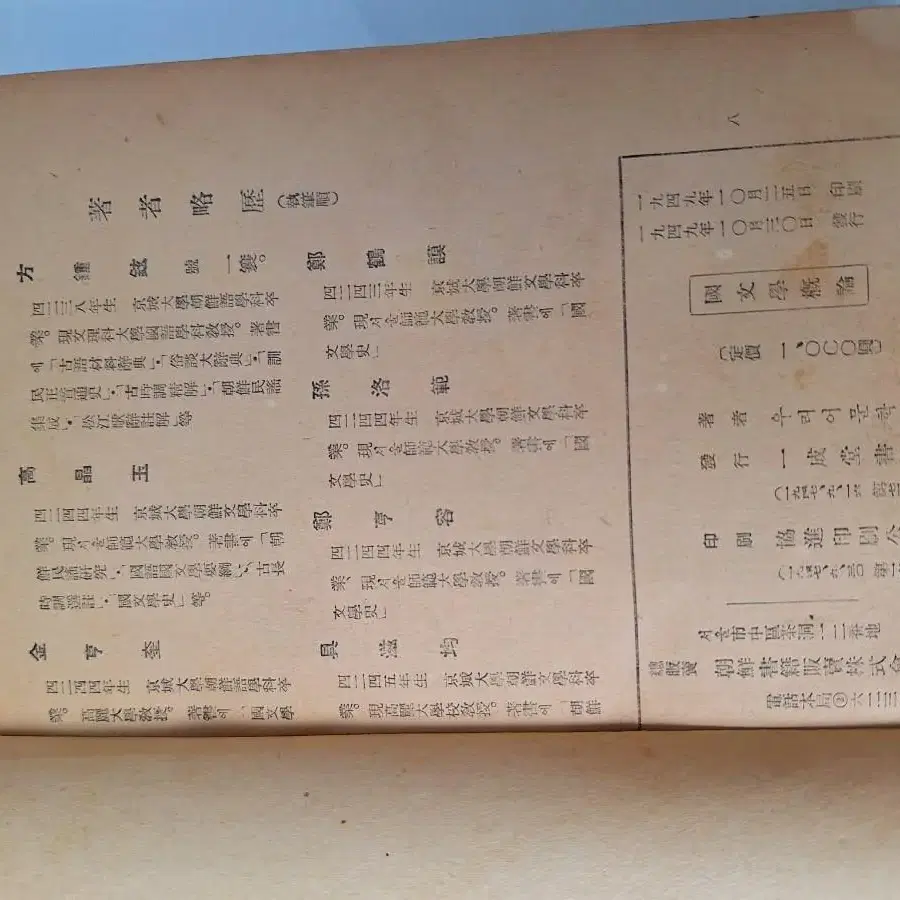 著者略歷(執筆順)
方鍾鉉 號 一簑。
四二三八年生 京城大學朝鮮語學科卒
業。現文理科大學國語學科敎授。著書
에「古語材料辭典」·「俗談大辭典」·「訓
民正音通史」·「古時調精解」·「朝鮮民謠
集成」·「松江歌辭註解」等
高晶玉
四二四四年生 京城大學朝鮮文學科卒
業。現서울師範大學敎授。著書에「朝
鮮民謠硏究」·「國語國文學要綱」·「古長
時調選註」·「國文學史」等。
金亨奎
四二四四年生 京城大學朝鮮語學科卒
業。高麗大學敎授。著書에「國文學
鄭鶴謨
四二四三年生 京城大學朝鮮文學科卒
業。現서울師範大學敎授。著書에「國
文學史」
孫洛範
四二四四年生 京城大學朝鮮文學科卒
業。現서울師範大學敎授。著書에「國
文學史」
鄭亨容
四二四四年生 京城大學朝鮮文學科卒
業 現서울師範大學敎授。著書에「國
文學史」
具滋均
四二四五年生 京城大學朝鮮文學科卒
業。現高麗大學校敎授。著書에「朝鮮
八
一九四九年一〇月二五日 印刷
一九四九年一〇月三〇日 發行
國文學槪論
(定價 一、〇〇〇圓)
著者 우리어문학
發行 一成堂書
(一九四七、九、一六
印刷 協進印刷公
(一九四七、九、三〇 第一
서울市中區茶洞一一二番地
總販賣 朝鮮書籍販賣株式會
電話本局②六一三